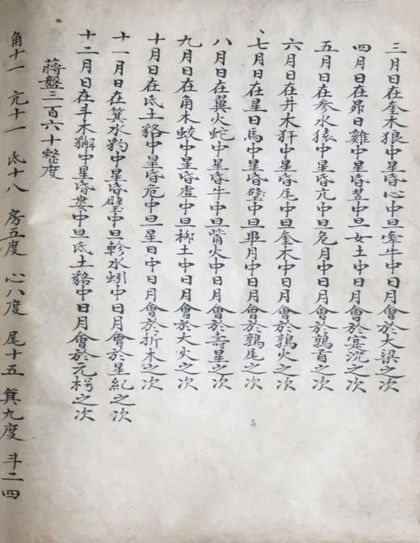 三月日在奎木狼中星昏心中旦牽牛中日月會於大梁之次
四月日在昴日雞中星昏翌中旦女土中日月會於寔沉之次
五月日在参水猿中星昏亢中旦危月中日月會於鶉首之次
六月日在井木犴中星昏尾中旦奎木中日月會於鶉火之次
七月日在星日馬中星昏璧中旦畢月中日月會於鶉尾之次
八月日在翼火蛇中星昏牛中旦觜火中日月會於壽星之次
九月日在角木蛟中星昏虚中旦柳土中日月會於大火之次
十月日在氐土貉中星昏危中旦星日中日月會於折木之次
十一月日在箕水豹中星昏璧中旦軫水蚓中日月會於星紀之次
十二月日在斗木獬中星昏婁中旦氐土貉中日月會於元枵之次
蔣盤三百六十整度
角十一 亢十一 氐十八 房五度 心八度 尾十五 箕九度 斗二四